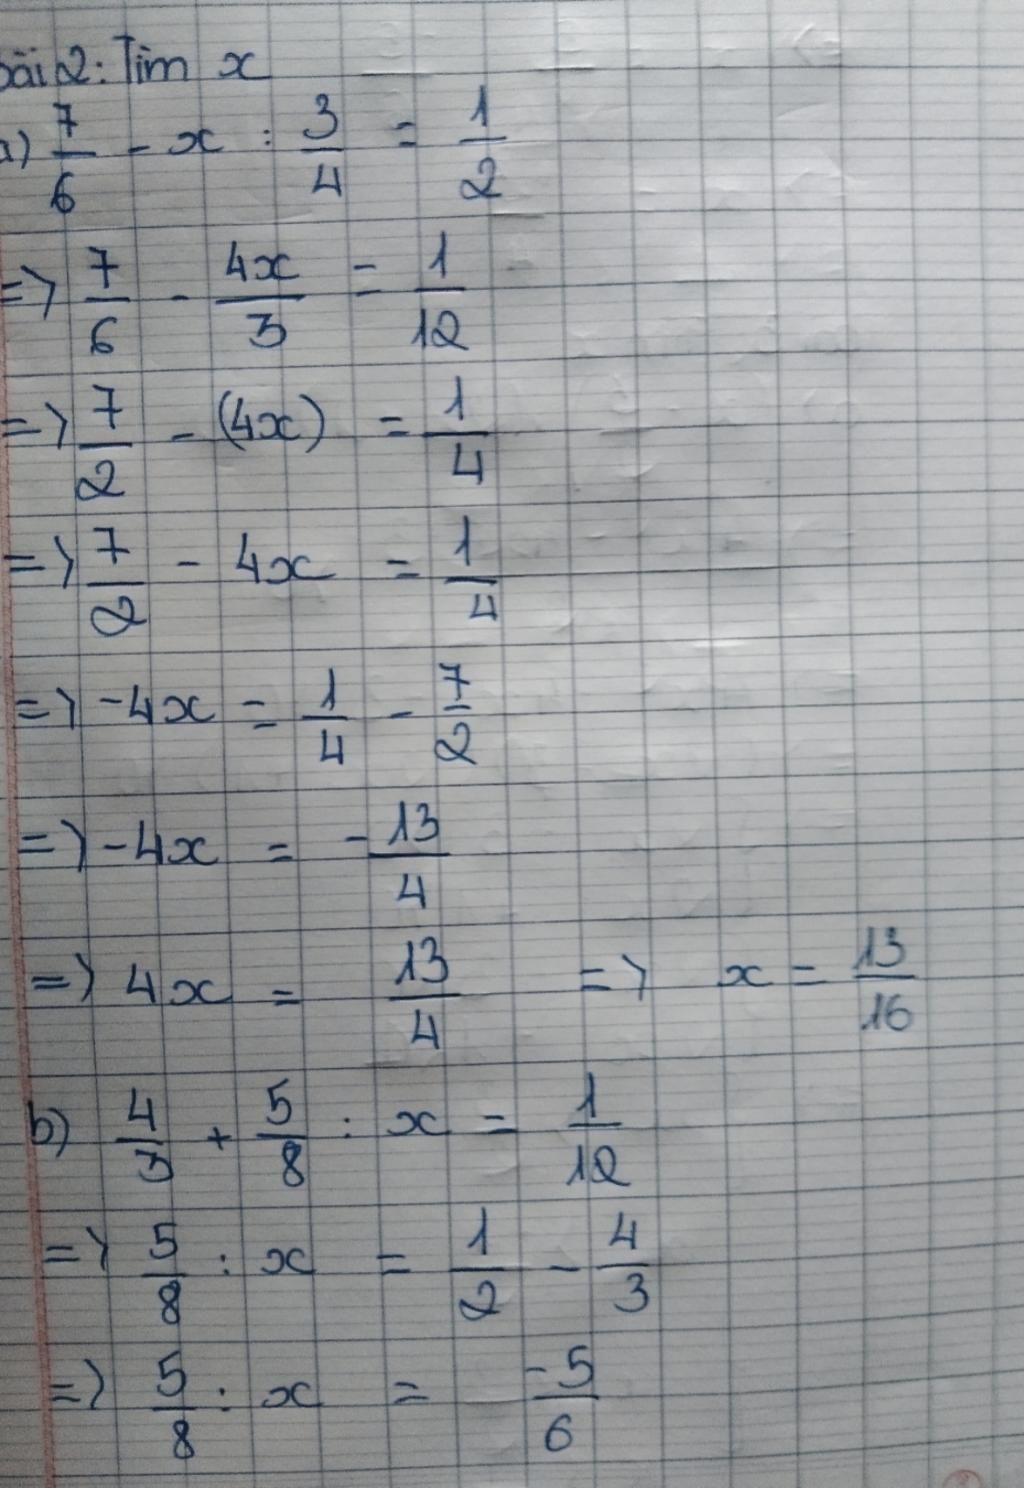 bài 2: Tìm x
a) 7/6 - x : 3/4 = 1/2
=> 7/6 - 4x/3 = 1/12
=> 7/2 - (4x) = 1/4
=> 7/2 - 4x = 1/4
=> -4x = 1/4 - 7/2
=> -4x = -13/4
=> 4x = 13/4 => x = 13/16
b) 4/3 + 5/8 : x = 1/12
=> 5/8 : x = 1/2 - 4/3
=> 5/8 : x = -5/6